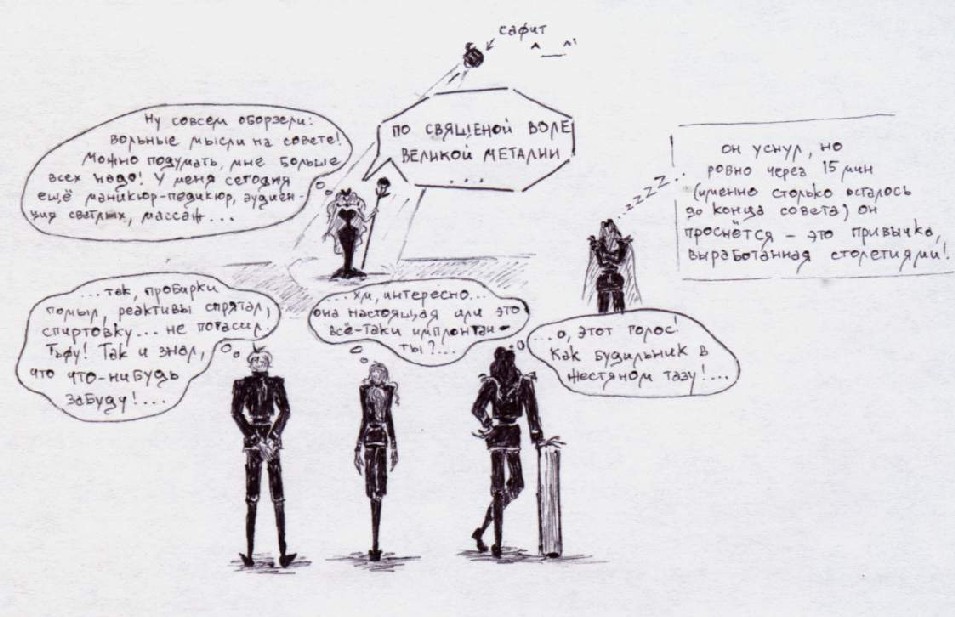 сафит
^__^!
Ну совсем оборзели:
вольные мысли на совете!
Можно подумать, мне больше
всех надо! У меня сегодня
ещё маникюр-педикюр, аудиен-
ция светлых, массаж...
ПО СВЯЩЕНОЙ ВОЛЕ
ВЕЛИКОЙ МЕТАЛИИ
...
zzzz...
он уснул, но
ровно через 15 мин
(именно столько осталось
до конца совета) он
проснётся – это привычка,
выработанная столетиями!
...так, пробирки
помыл, реактивы спрятал,
спиртовку... не погасил.
Тьфу! Так и знал,
что что-нибудь
забуду!...
...хм, интересно...
она настоящая или это
всё-таки имплонтан-
ты?...
...о, этот голос!
Как будильник в
жестяном тазу!...